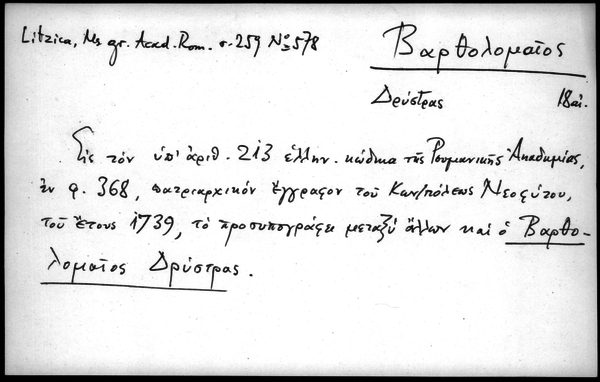 Litzica, Ms gr. Acad. Rom. σ. 259 Nº 578
Βαρθολομαῖος
Δρύστρας 18 αἰ.
Εἰς τὸν ὑπ' ἀριθ. 213 ἑλλην. κώδικα τῆς Ρουμανικῆς Ἀκαδημίας,
ἐν φ. 368, πατριαρχικόν ἔγγραφον τοῦ Καν/πόλεως Νεοφύτου,
τοῦ ἔτους 1739, τὸ προσυπογράφει μεταξύ ἄλλων καὶ ὁ Βαρθο-
λομαῖος Δρύστρας.